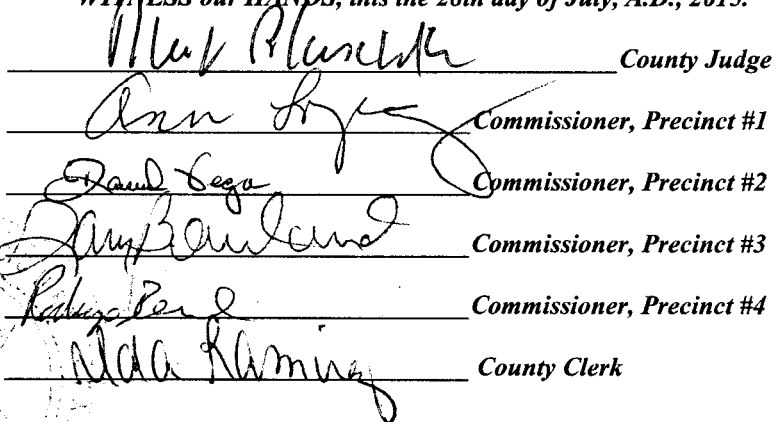 WITNESS our HANDS, this the 26th day of July, A.D., 2013.
County Judge
Ann Commissioner, Precinct #1
David Vega Commissioner, Precinct #2
Commissioner, Precinct #3
Commissioner, Precinct #4
Ramirez County Clerk